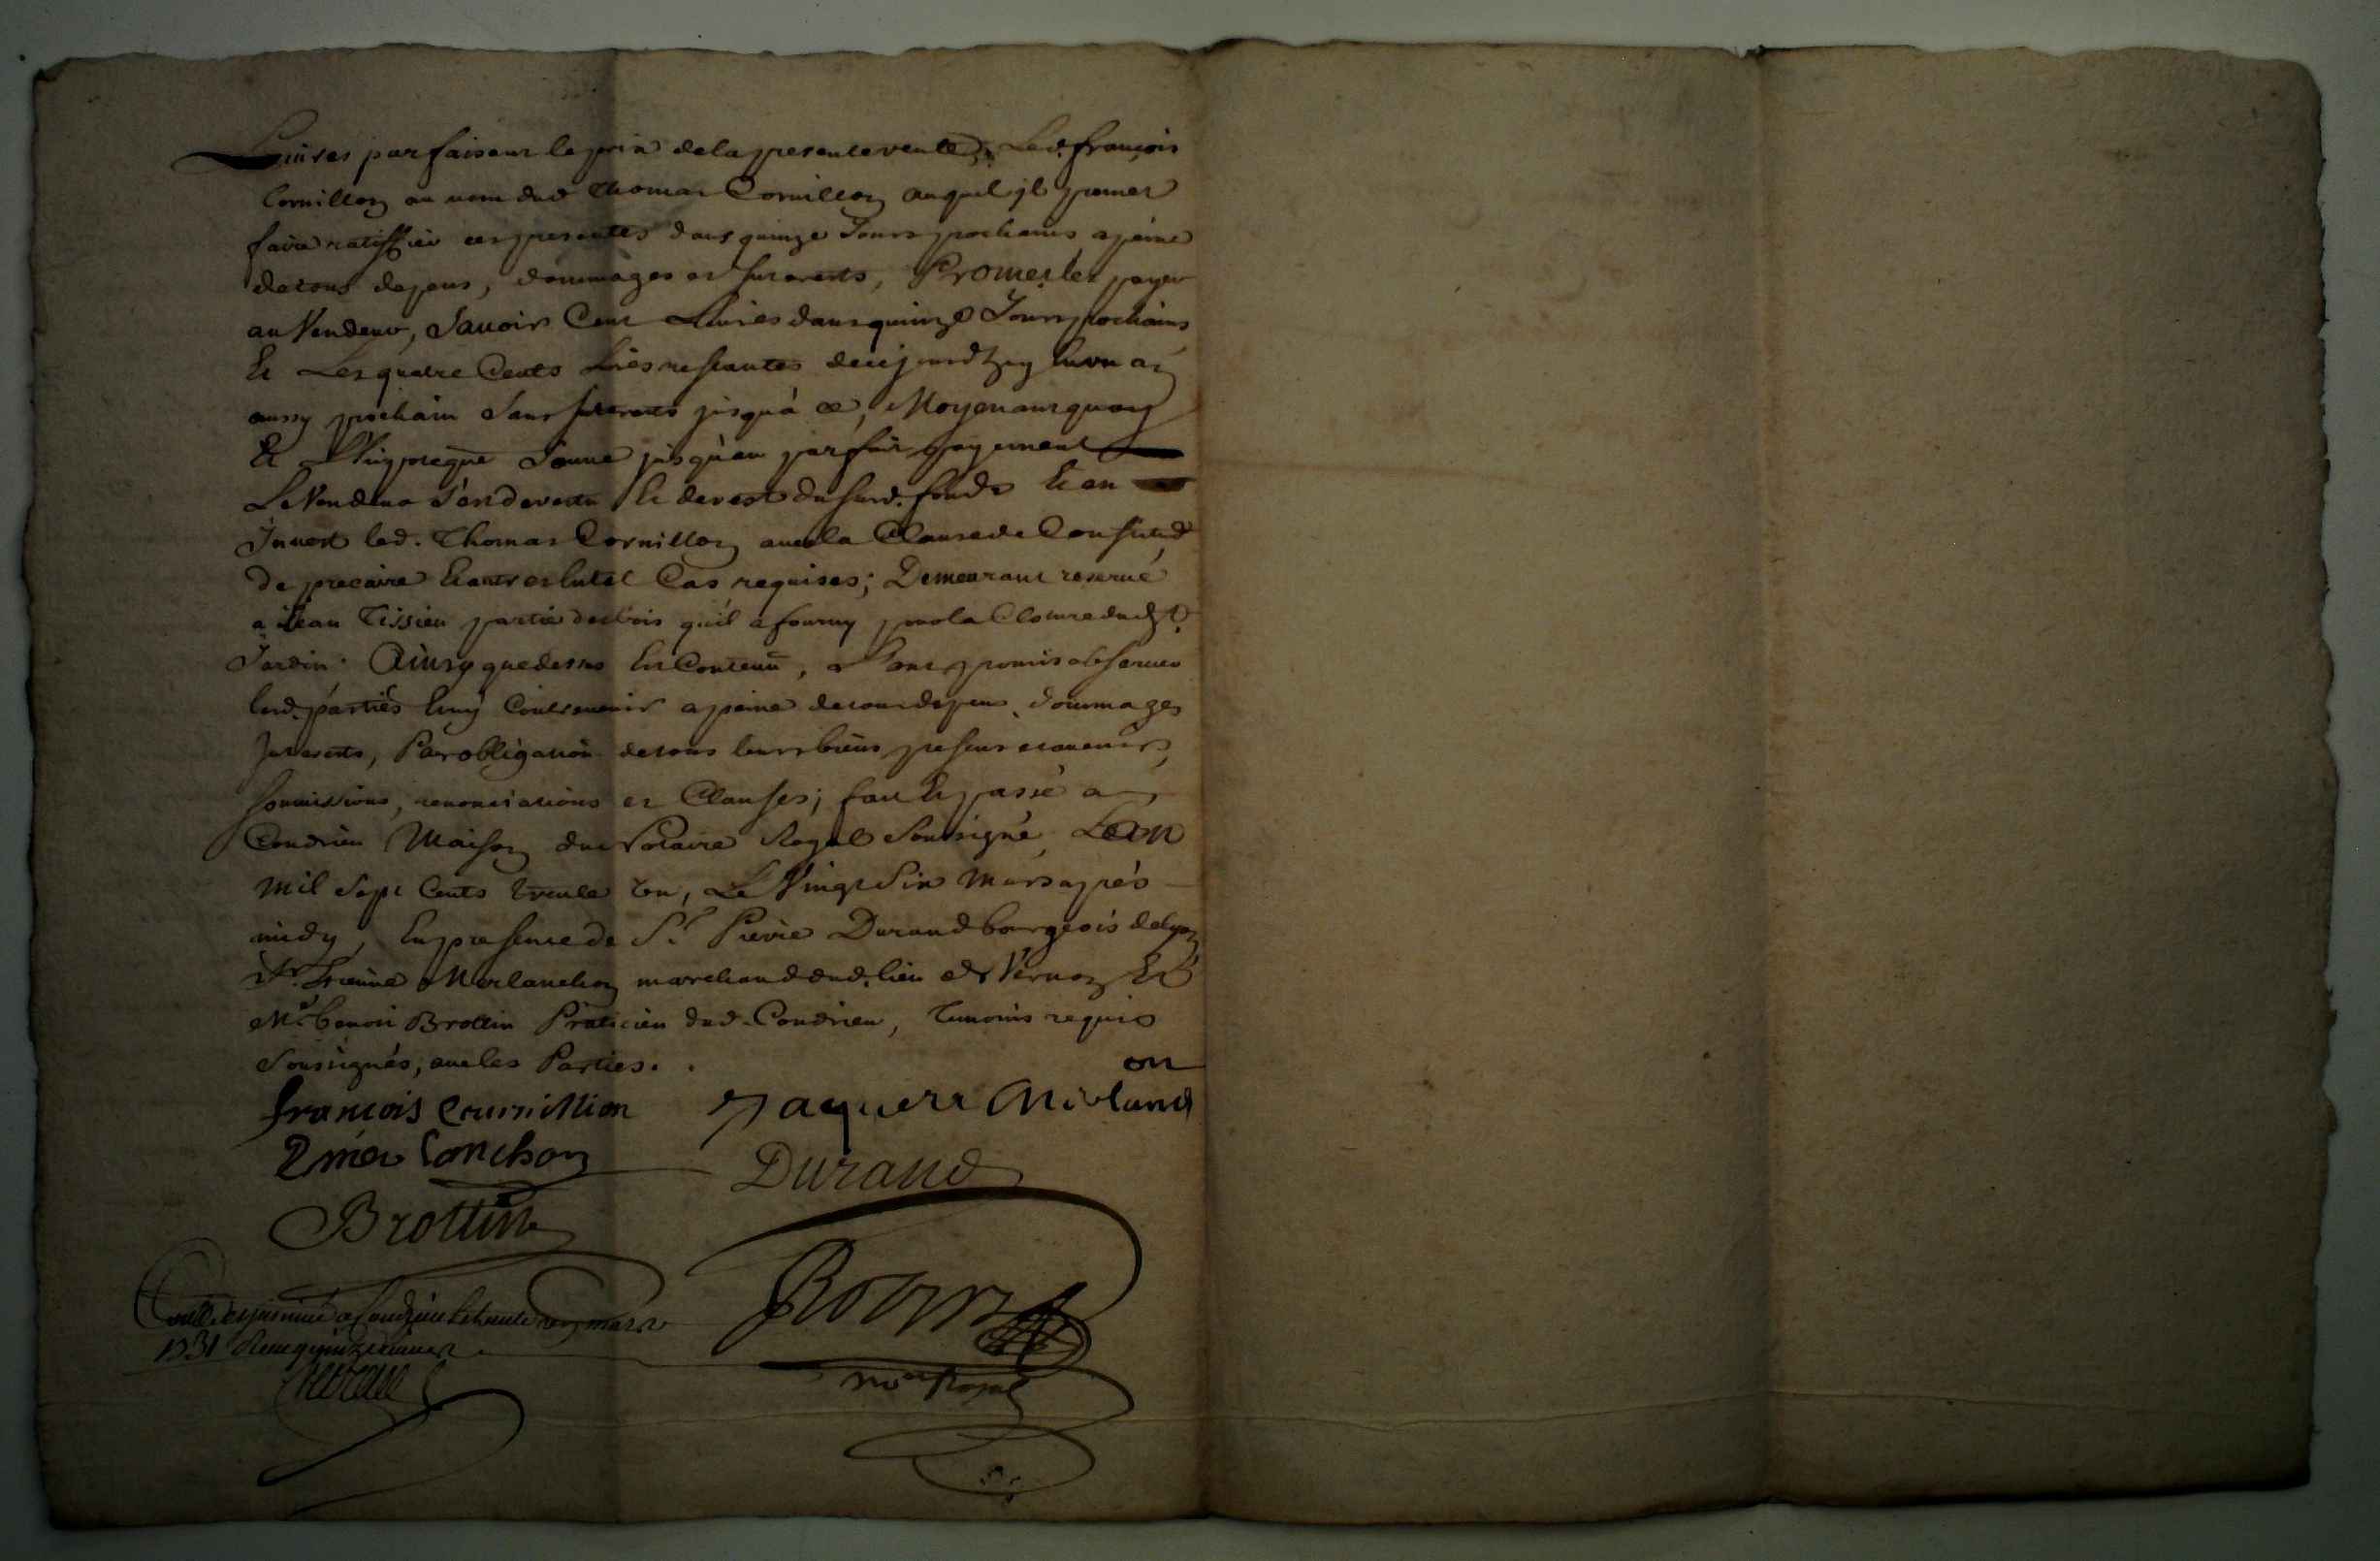 Liures parfaisant le prix de la presente vente, Led. françois
Cornillon au nom dud Thomas Cornillon auquel jl promet
faire ratiffier ces presentes dans quinze Jours prochains a peine
de tous depens, dommages et Interests, Promet les payer
au Vendeur, Sauoir Cent Liures dans quinze Jours prochains
Et Les quatre Cents restantes
aussy prochain Sans Interests jusqu'à ce, Moyenant quoy
Et jusqu'au parfait payement
Le Vendeur s'est devestu Et devest du susd. fonds Et en
Jnvest led. Thomas Cornillon auec la Clause de Constitut
de precaire Et autres En tel Cas requises; Demeurant reserué
a Jean Tissieu partie des bois qu'il a fourny pour la Closure dudt.
Jardin. Ainsy que dessus Est Contenu, Lont promis obseruer
lesd. parties Et ny Contreuenir a peine de tous depens dommages
Interests, Par obligation de tous leurs biens presens et auenirs,
soumissions, renonciations et Clauses; fait Et passé a
Condrieu Maison du Notaire Royal Soussigné, L'an
mil Sept Cents trente Un, Le Vingt Six Mars aprés
midy, En presence de Sr. Pierre Durand bourgeois de Lyon
Sr. Etienne Merlanchon marchand dud. lieu de Vernon Et
Me. benoit Brottin Praticien dud. Condrieu, temoins requis
Soussignés, auec les Parties.
on
françois Cournillion Jaques Mirland
Durand
Brottin
Controllé a Condrieu le trente un mars
1731 Receu quinze
Nore Royal